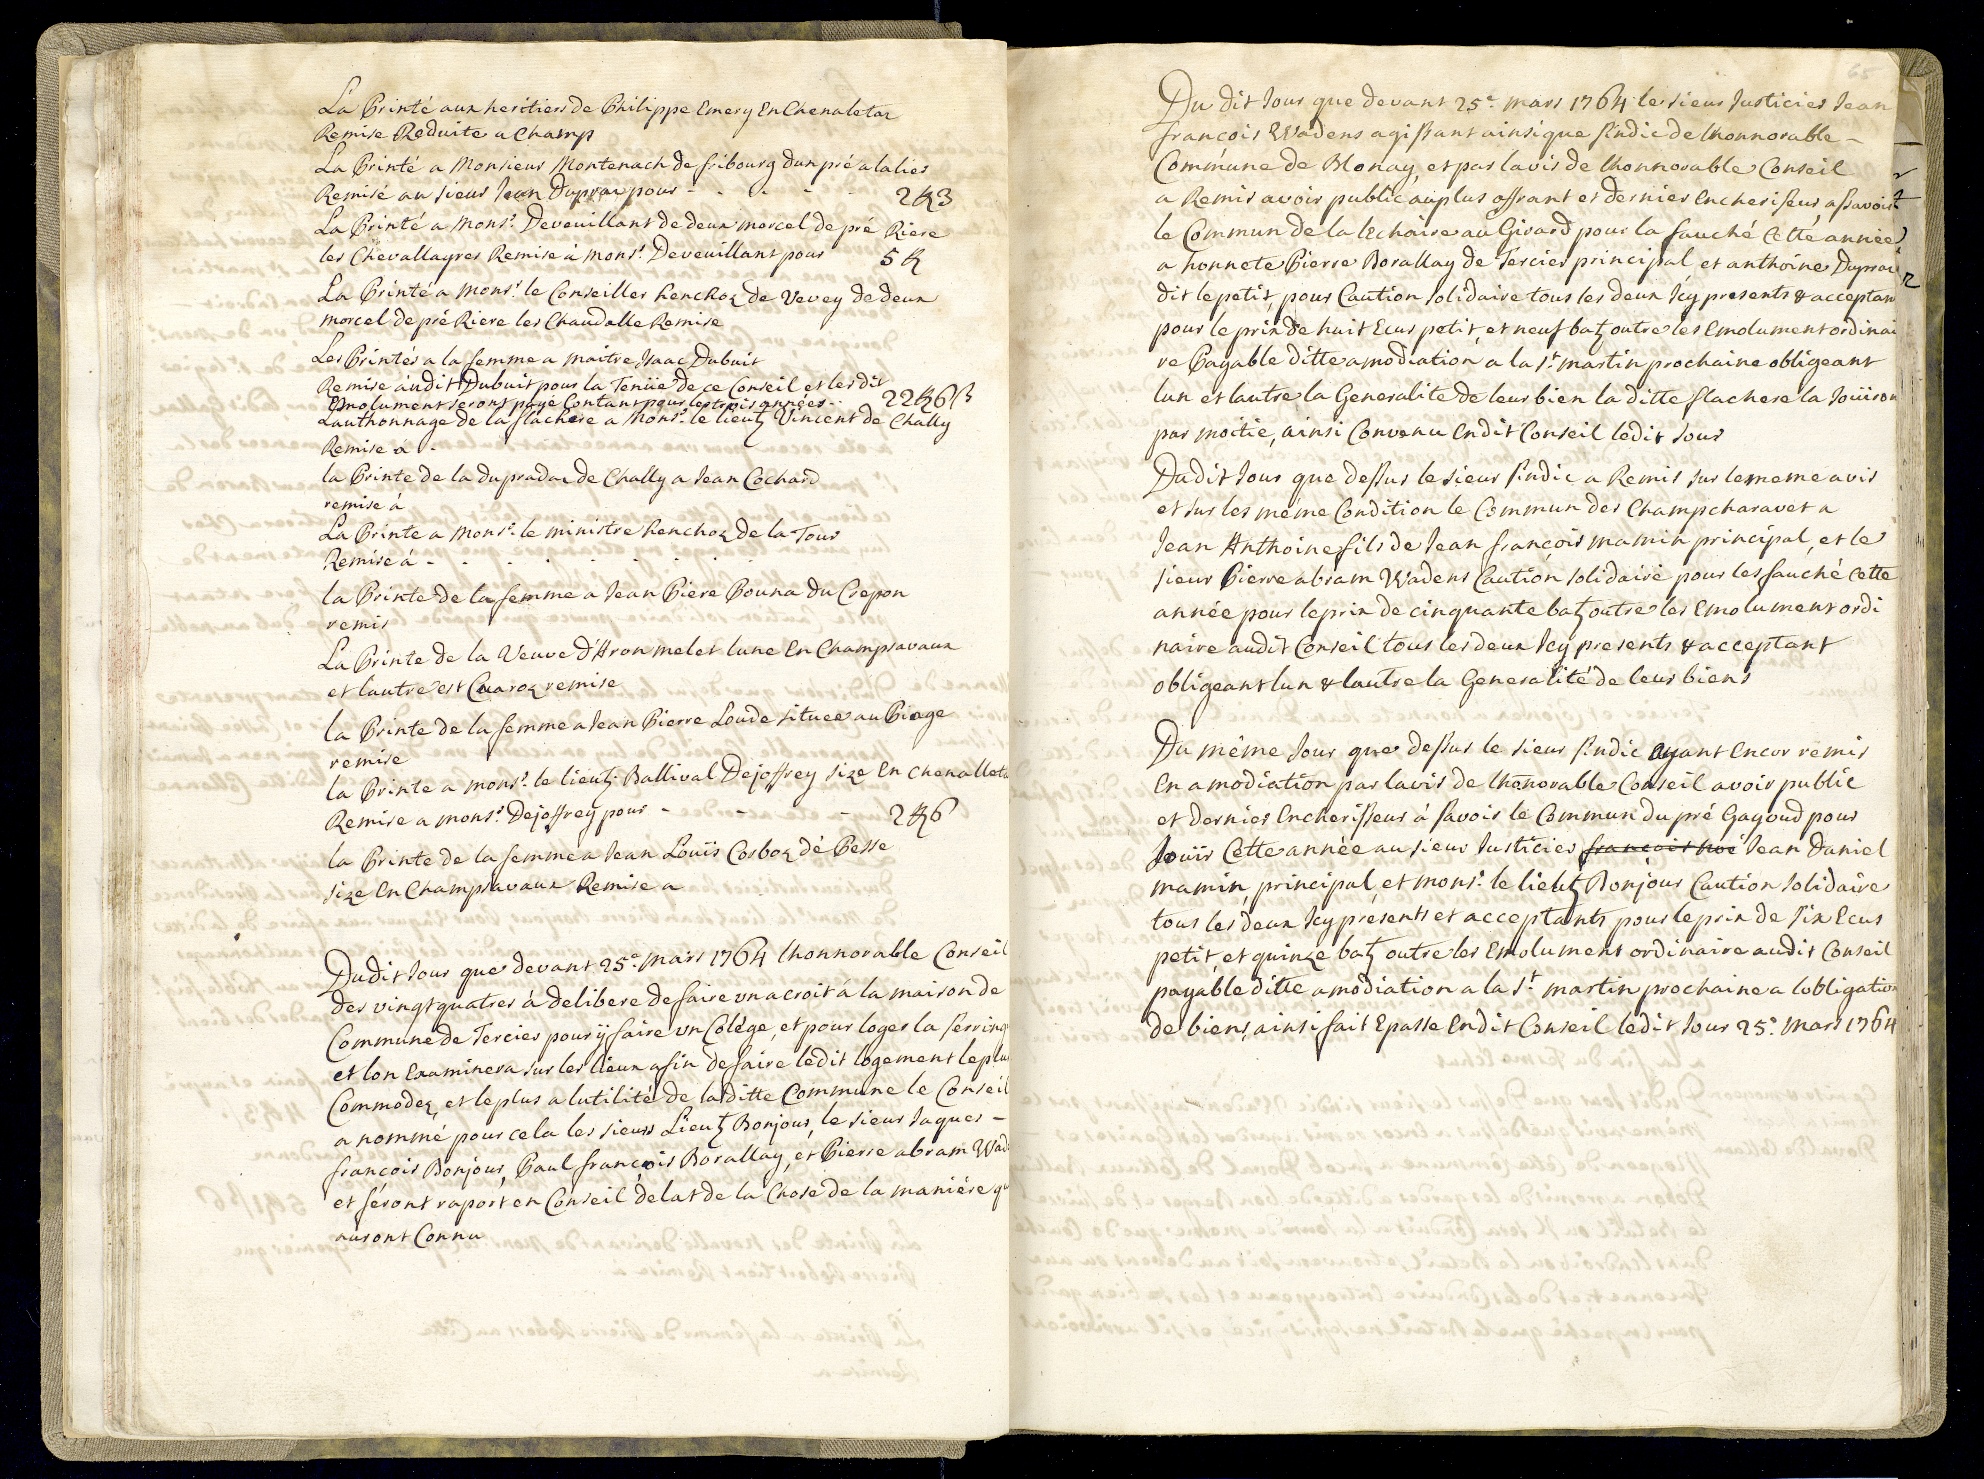 La Printé aux heritiers de Philippe Emery En Chenaletaz
Remise Reduite a Champ
La Printé a Monsieur Montenach de fribourg dun pré a lalier
Remisé au sieur Jean Dupraz pour - - - - 2 R 3
La Printé a Mons.r Deveuillant de deux morcel de pré Riere
les Chevallayres Remise à Mons.r Deveuillant pour 5 R
La Printé a Mons.r le Conseiller henchoz de Vevey de deux
morcel de pré Riere les Chaudalle Remise
Les Printes a la femme a maitre Isaac Dubuit
Remise audit Dubuit pour la Tenüe de ce Conseil et les dit
Emolument seront payé Contant pour les trois années - 22 R 6 ß
Lauthonnage de la flachere a Mons.r le lieut Vincent de Chally
Remise à -
la Printe de la dupradaz de Chally a Jean Cochard
remise à
La Printe a Mons.r le ministre henchoz de la Tour
Remise à - - - - - -
la Printe de la femme a Jean Piere Bouna du Crepon
remis
La Printe de la Veuve d'Aron melet lune En Champsavaux
et lautre est Cuaroz remise
la Printe de la femme a Jean Pierre Loude situee au Piage
remise
la Printe a mons.r le lieut Ballival Dejoffrey size En chenalleta
Remise a mons.r Dejoffrey pour - - - 2 R 6
la Printe de la femme a Jean Louïs Corboz dé Pesse
size En Champsavaux Remise a
Dudit Jour que devant 25.e mars 1764 lhonnorable Conseil
des vingt quatres à delibere de faire un acroit à la maison de
Commune de Tercier pour ÿ faire un Colége, et pour loger la serring
et lon Examinera sur les lieux afin de faire ledit logement le plus
Commodez, et le plus a lutilité de laditte Commune le Conseil
a nommé pour cela les sieurs Lieut Bonjour, le sieur Jaques -
françois Bonjour, Paul françois Borallay, et Pierre abram Wad
et feront raport en Conseil delat de la Chose de la maniére qu
auront Connu
65
Du dit Jour que devant 25.e mars 1764 le sieur Justicier Jean
françois Wadens agissant ainsi que sindic de lhonnorable -
Commune de Blonay, et par lavis de lhonnorable Conseil
a Remis avoir publié au plus offrant et dernier Encheriseur assavoir
le Commun de la lechaire au Girard pour la fauché Cette année
a honnete Pierre Borallay de Tercier principal, et anthoine Dupraz
dit le petit, pour Caution solidaire tous les deux Icy presents & acceptan
pour le prix de huit Ecus petit, et neuf batz outre les Emolument ordinai
re Payable ditte amodiation a la s.t martin prochaine obligeant
lun et lautre la Generalité de leur bien la ditte flachere la Joüiron
par moitié, ainsi Convenu Endit Conseil ledit Jour
Dudit Jour que dessus le sieur sindic a Remis sur le meme avis
et sur les meme Condition le Commun des Champcharavet a
Jean Anthoine fils de Jean françois mamin principal, et le
sieur Pierre abram Wadens Caution solidaire pour les fauché cette
année pour le prix de cinquante batz outre les Emolument ordi
naire audit Conseil tous les deux Icy presents & acceptant
obligeant lun & lautre la Generalité de leur biens
Du même Jour que dessus le sieur sindic ayant Encor remis
En amodiation par lavis de lhonorable Conseil avoir publié
et dernier Encherisseur à savoir le Commun du pré Gayoud pour
Joüir Cette année au sieur Justicier françois Jean Daniel
mamin, principal et mons.r le lieut Bonjour Caution solidaire
tous les deux Icy présents et acceptants pour le prix de six Ecus
petit, et quinze batz outre les Emolument ordinaire audit Conseil
payable ditte amodiation a la s.t martin prochaine a lobligation
de biens, ainsi fait Epasse Endit Conseil ledit Jour 25.e mars 1764